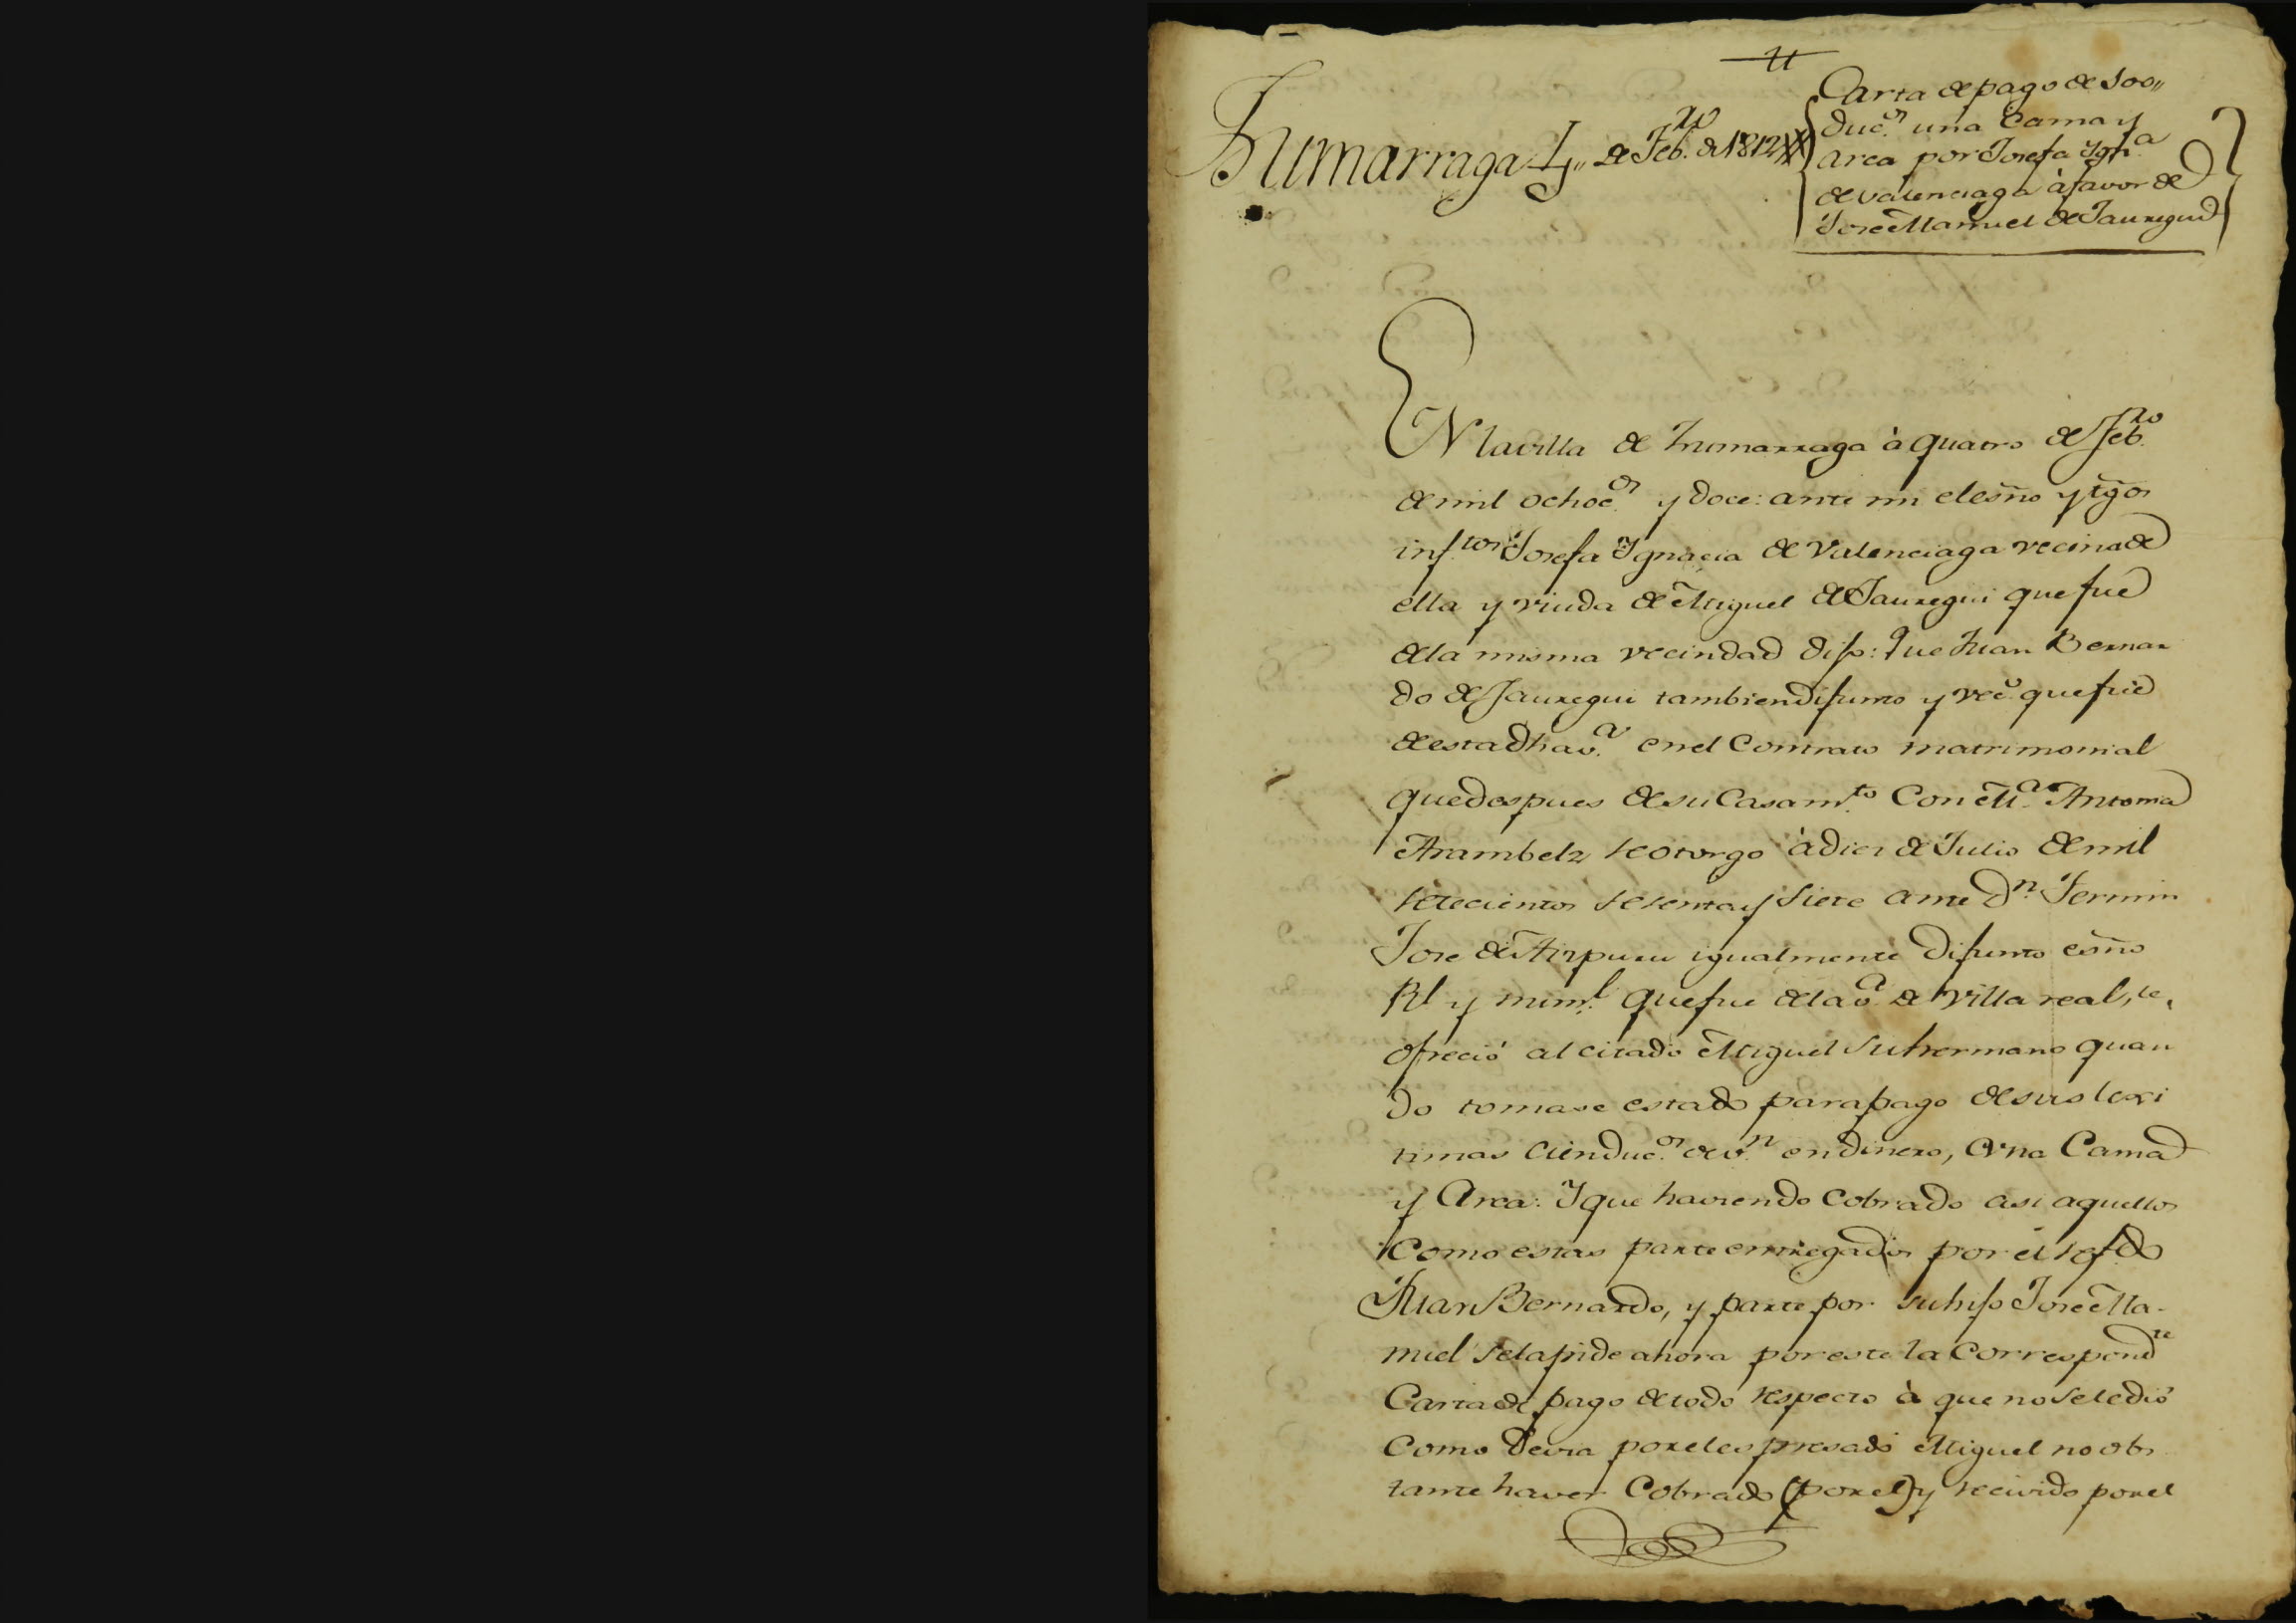 Zumarraga 4,, de Feb.ro de 1812
Carta de pago de 100,,
duc.s una Cama y
arca por Josefa Ign.a
de Valenciaga à favor de
Jose Manuel de Jauregui
EN la villa de Zumarraga à quatro de Feb.ro
de mil ochoc.s y doce: ante mi el esño y tgos
inf.tos Josefa Ygnacia de Valenciaga vecina de
ella y viuda de Miguel de Jauregui que fue
de la misma vecindad dijo: Que Juan Bernar
do de Jauregui tambien difunto y vec.o que fue
de esta dha v.a en el Contrato matrimonial
que despues de su Casam.to Con M.a Antonia
Arambelz se otorgo à diez de Julio de mil
setecientos sesenta y Siete ante D.n Fermin
Jose de Aizpuru igualmente difunto esño
Rl y num.l que fue de la v.a de Villa real, le
ofreció al citado Miguel su hermano quan
do tomase estado para pago de sus lexi
timas cien duc.s de v.n en dinero, una Cama
y Arca: Y que haviendo Cobrado asi aquellos
Como estas parte entregados por el refdo
Juan Bernardo, y parte por su hijo Jose Ma-
nuel se la pide ahora por este la Correspond.te
Carta de pago de todo respecto à que no se le dió
Como devia por el espresado Miguel no obs
tante haver Cobrado (por el) y recivido por el